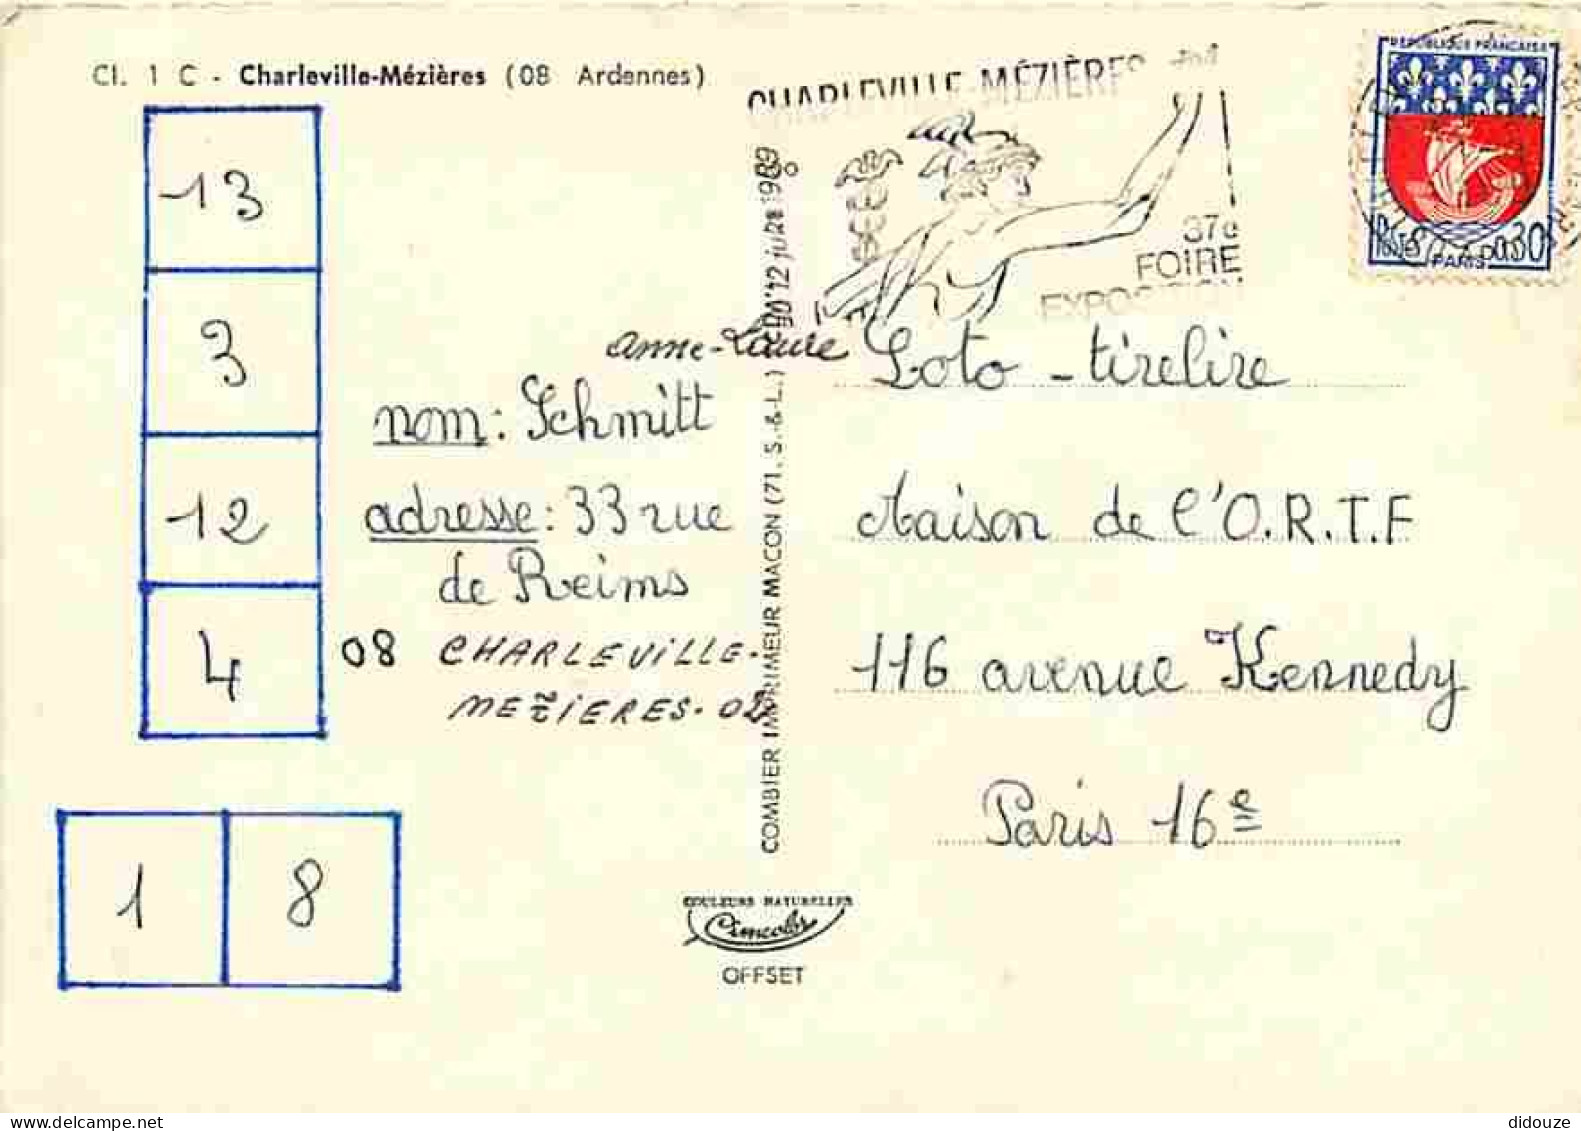 Cl. 1 C - Charleville-Mézières (08 Ardennes)
13
3
12
4
1
8
anne-Laure
nom: Schmitt
adresse: 33 rue
de Reims
08 CHARLEVILLE-
MEZIERES. 02
COMBIER IMPRIMEUR MACON (71. S.-&-L.)
COULEURS NATURELLES
Cimcolor
OFFSET
CHARLEVILLE-MÉZIÈRES
37e
FOIRE
EXPOSITION
REPUBLIQUE FRANÇAISE
POSTES 0.30
PARIS
Loto - tirelire
Maison de l'O.R.T.F
116 avenue Kennedy
Paris 16e
didouze